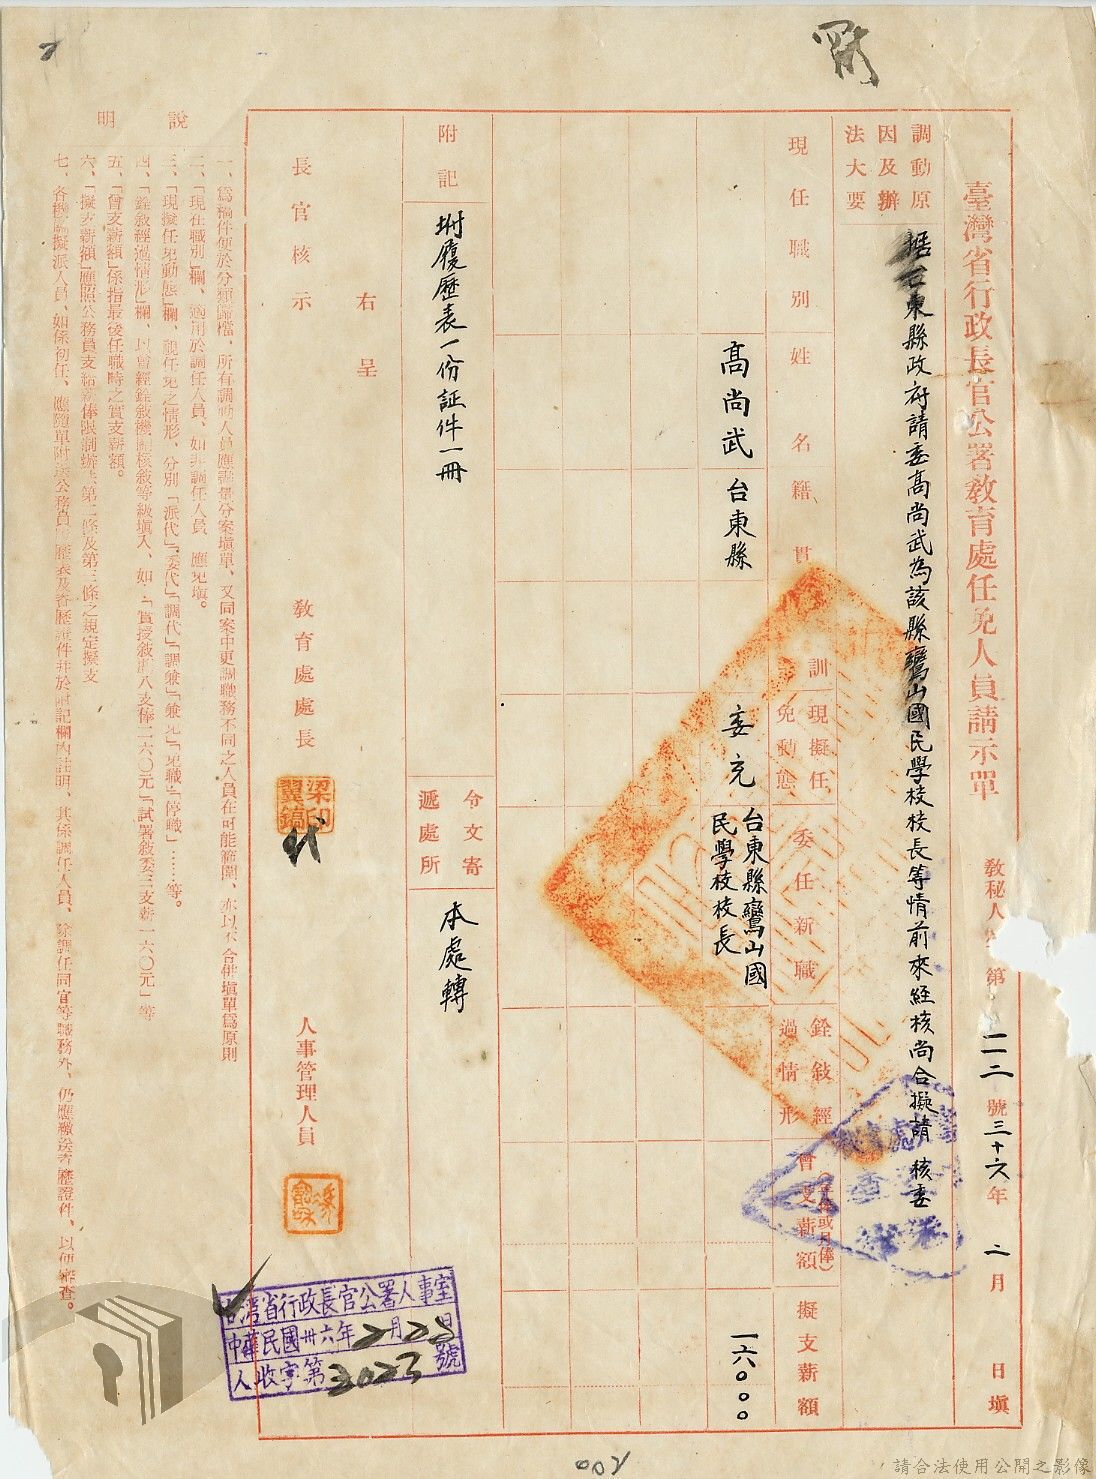 臺灣省行政長官公署教育處任免人員請示單
教秘人
第一一二號三十六年二月 日塡
調動原
因及辦
法大要
據台東縣政府請委高尚武為該縣鸞山國民學校校長等情前來經核尚合擬請 核委
現任職別
姓名
籍貫
現擬任
免動態
委任新職
銓敍經
過情形
曾支薪額
擬支薪額
高尚武
台東縣
委充
台東縣鸞山國
民學校校長
一六〇〇〇
附記
坿履歷表一份証件一冊
令文寄
遞處所
本處轉
右呈
長官核示
教育處處長
梁翼鎬印
代
人事管理人員
說明
一、爲稿件便於分類歸檔、所有調動人員應儘量分案塡單、又同案中更調職務不同之人員在可能範圍、亦以不合併塡單爲原則
二、「現在職別」欄、適用於調任人員、如非調任人員 應免塡。
三、「現擬任免動態」欄、視任免之情形、分別「派代」「委代」「調代」「調兼」「兼免」「免職」「停職」……等。
四、「銓敍經過情形」欄、以曾經銓敍機關核敍等級塡入、如:「實授敍薦八支俸二六〇元」「試署敍委三支薪一六〇元」等
五、「曾支薪額」係指最後任職時之實支薪額。
六、「擬支薪額」應照公務員支給薪俸限制辦法第二條及第三條之規定擬支
七、各機關擬派人員、如係初任、應隨單附送公務員履歷表及各歷證件並於附記欄內註明、其係調任人員、除調任同官等職務外、仍應繳送資歷證件、以便審查。
台灣省行政長官公署人事室
中華民國卅六年2月25日
人收字第2023號
002
請合法使用公開之影像